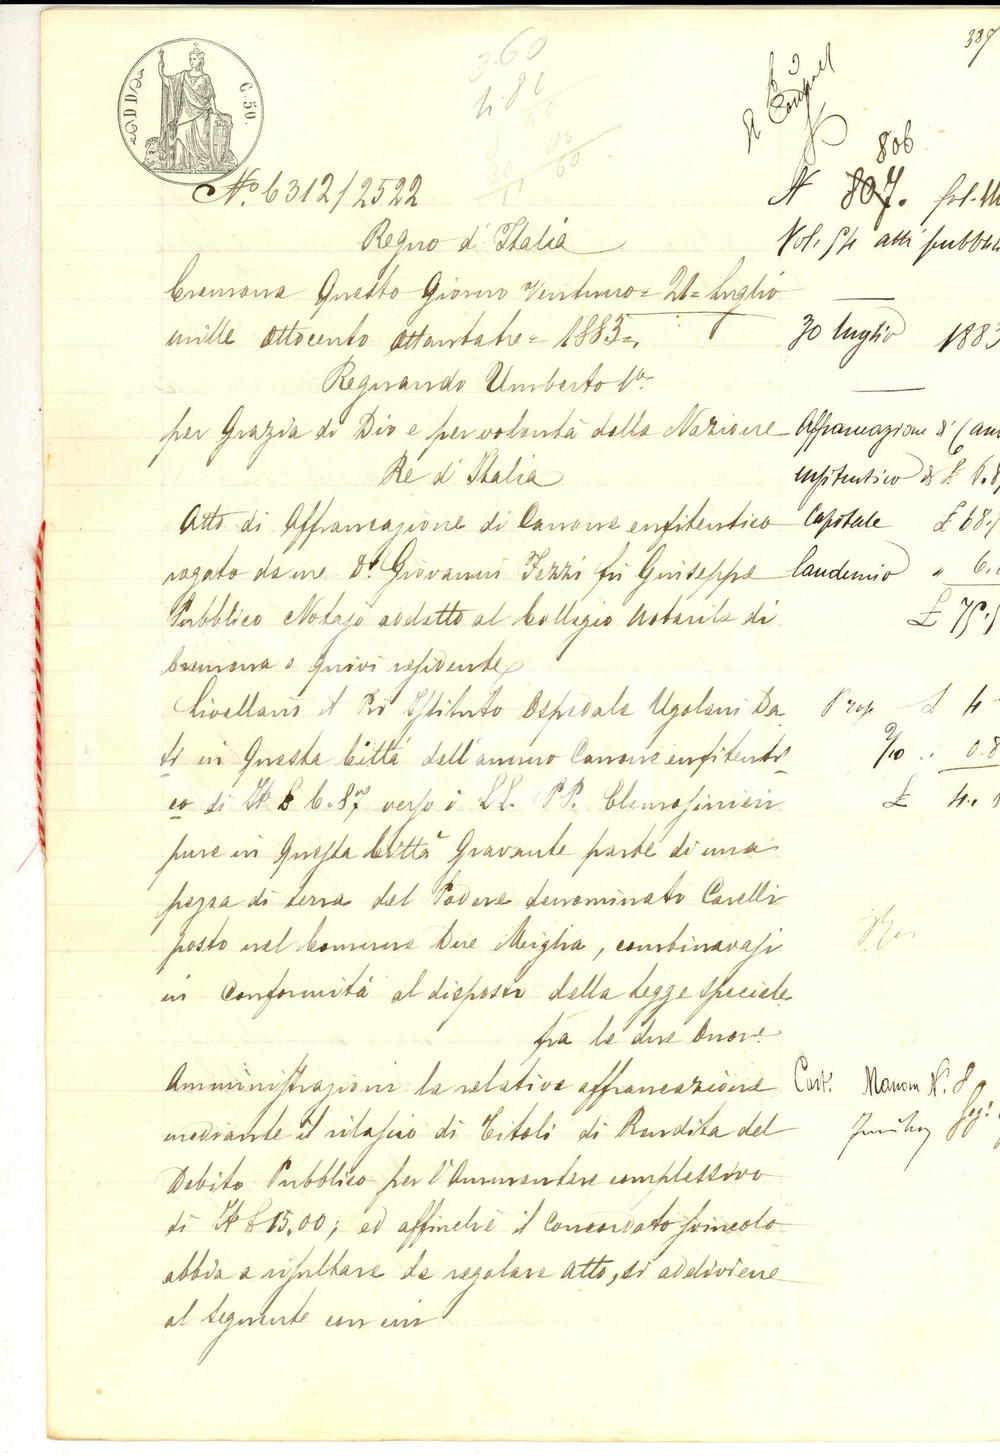 337
3.60
ADDÌ
C. 50.
806
N.º 6312/2522
N 807.
Regno d'Italia
Vol. 54 atti pubbli
Cremona Questo Giorno Ventuno = 21 = Luglio
mille ottocento ottantatre = 1883 =.
30 luglio 1883
Regnando Umberto Iº.
per Grazia di Dio e per volontà della Nazione
Affrancazione d'
Re d'Italia
enfiteutico di £ 6.8
Atto di Affrancazione di Canone enfiteutico
Capitale £ 68.
rogato da me Dr. Giovanni Fezzi fu Giuseppe
laudemio " 6.
Pubblico Notajo addetto al Collegio Notarile di
£ 75.
Cremona e quivi residente
Livellario il Pio Istituto Ospedale Ugolani Da
Prop £ 4
ti in Questa Città dell'annuo Canone enfiteuti
2/10 " 0.8
co di It £ 6.87 verso i LL. PP. Elemosinieri
£ 4.
pure in Questa Città Gravante parte di una
pezza di terra del Podere denominato Cavelli
posto nel Comune Due Miglia, combinavasi
in Conformità al disposto della Legge speciale
fra le due Onor.
Amministrazioni la relativa affrancazione
Cart. Manom N. 8
mediante il rilascio di Titoli di Rendita del
Debito Pubblico per l'Ammontare complessivo
di It £ 15.00; ed affinchè il Concordato svincolo
abbia a risultare da regolare Atto, si addiviene
al seguente con cui